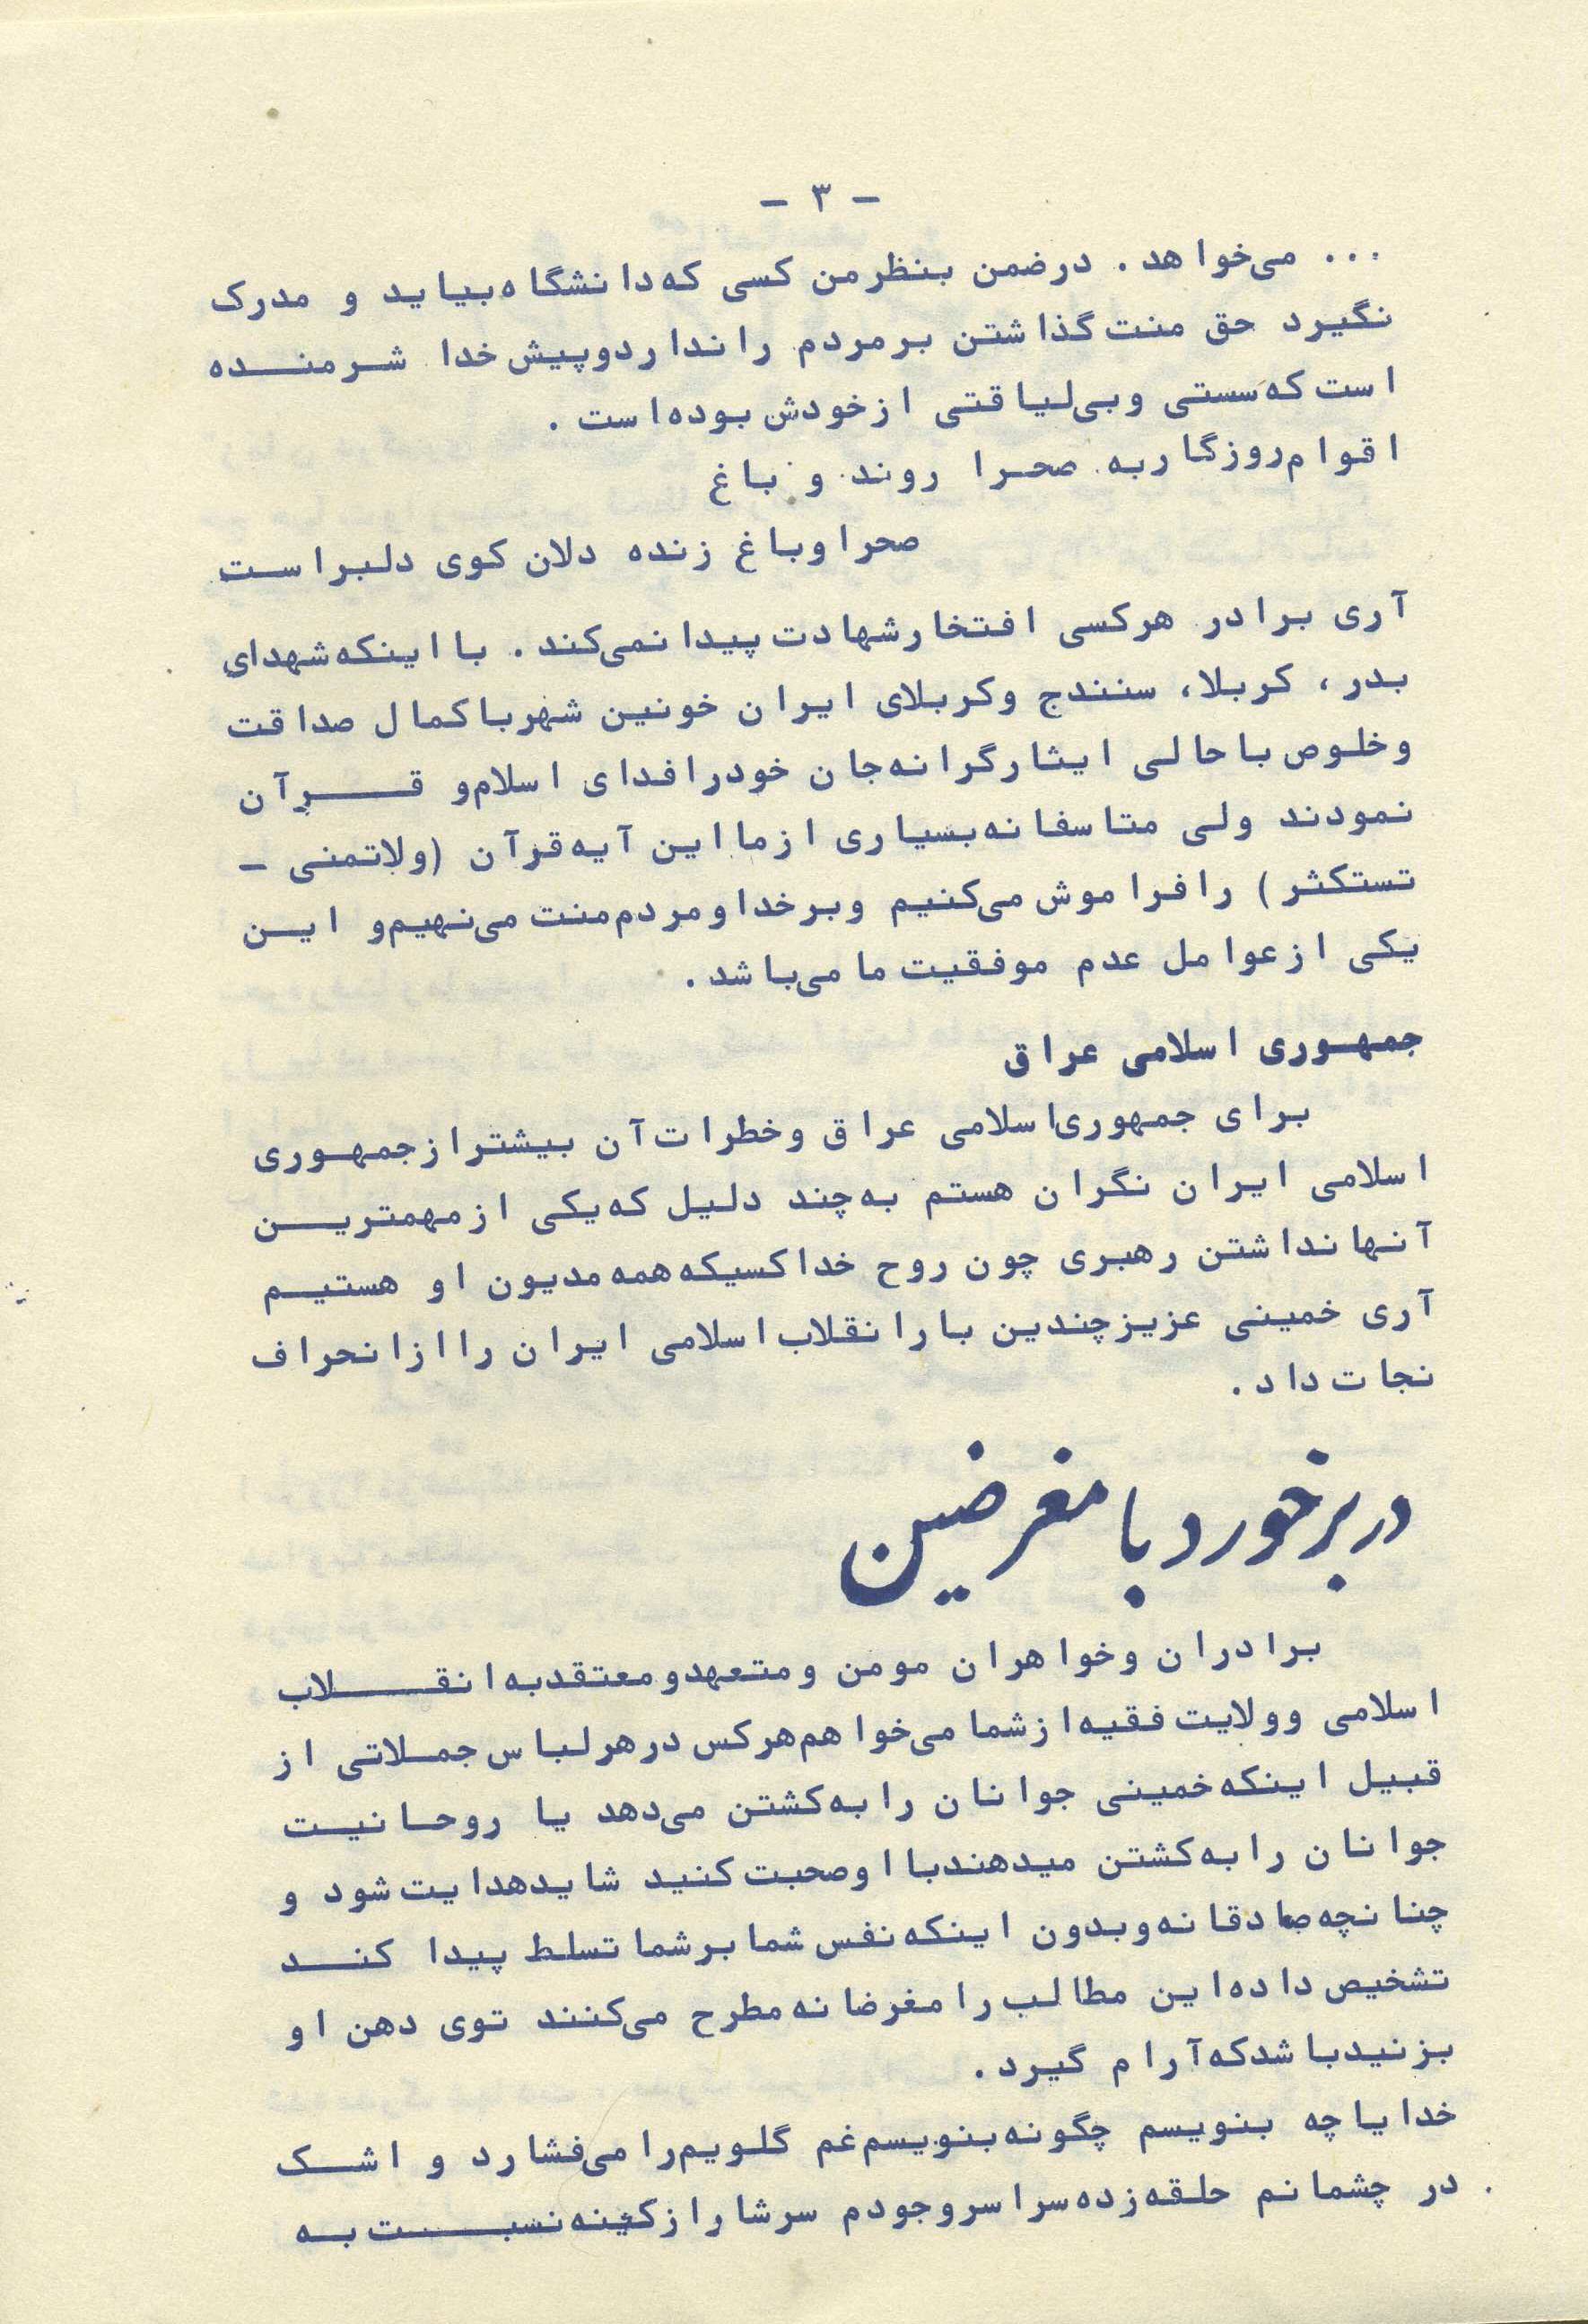 - ۳ -
... می‌خواهد. درضمن بنظرمن کسی که دانشگاه بیاید و مدرک
نگیرد حق منت گذاشتن برمردم را ندارد وپیش خدا شرمنده
است که سستی وبی‌لیاقتی ازخودش بوده است.
اقوام روزگار به صحرا روند و باغ
صحرا وباغ زنده دلان کوی دلبراست
آری برادر هرکسی افتخارشهادت پیدا نمی‌کند. با اینکه شهدای
بدر، کربلا، سنندج وکربلای ایران خونین شهر باکمال صداقت
وخلوص باحالی ایثارگرانه جان خودرا فدای اسلام و قرآن
نمودند ولی متاسفانه بسیاری ازما این آیه قرآن (ولاتمنی -
تستکثر) را فراموش می‌کنیم وبرخدا ومردم منت می‌نهیم و این
یکی ازعوامل عدم موفقیت ما می‌باشد.
جمهوری اسلامی عراق
برای جمهوری اسلامی عراق وخطرات آن بیشتر ازجمهوری
اسلامی ایران نگران هستم به چند دلیل که یکی ازمهمترین
آنها نداشتن رهبری چون روح خدا کسیکه همه مدیون او هستیم
آری خمینی عزیز چندین بار انقلاب اسلامی ایران را ازانحراف
نجات داد.
در برخورد با مغرضین
برادران وخواهران مومن ومتعهد و معتقد به انقلاب
اسلامی وولایت فقیه ازشما می‌خواهم هرکس درهرلباس جملاتی از
قبیل اینکه خمینی جوانان را به کشتن می‌دهد یا روحانیت
جوانان را به کشتن میدهند با اوصحبت کنید شاید هدایت شود و
چنانچه صادقانه وبدون اینکه نفس شما برشما تسلط پیدا کند
تشخیص داده این مطالب را مغرضانه مطرح می‌کنند توی دهن او
بزنید باشدکه آرام گیرد.
خدایا چه بنویسم چگونه بنویسم غم گلویم را می‌فشارد و اشک
در چشمانم حلقه زده سراسر وجودم سرشار ازکینه نسبت به